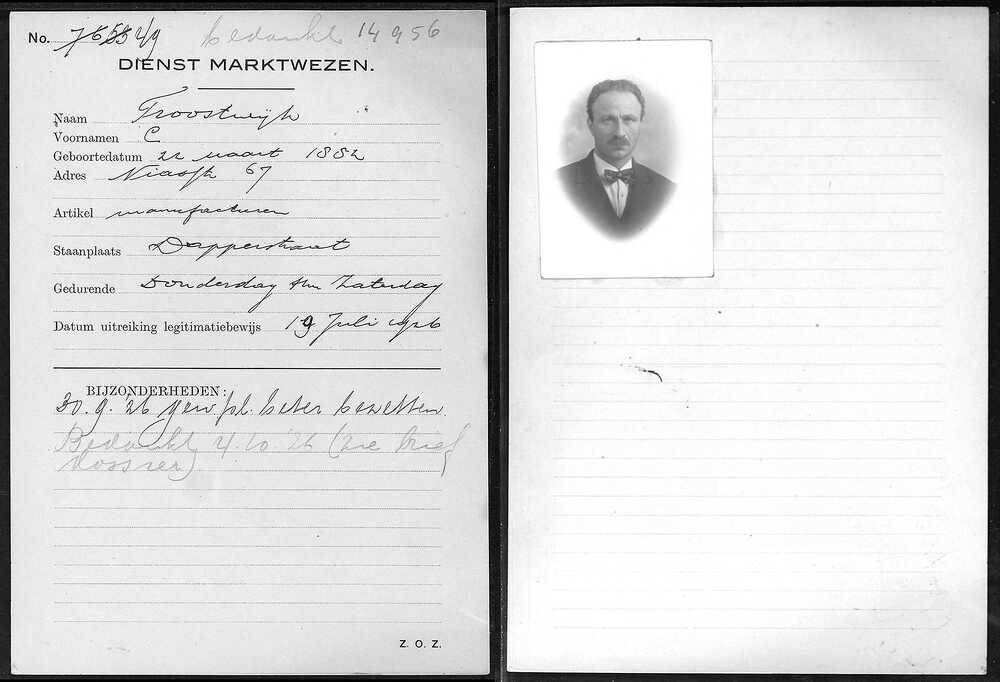 No. 76 249 bedankt 14 9 56
DIENST MARKTWEZEN.
Naam Troostwijk
Voornamen C
Geboortedatum 22 maart 1882
Adres Niasstr 67
Artikel manufacturen
Staanplaats Dapperstraat
Gedurende Donderdag t/m Zaterdag
Datum uitreiking legitimatiebewijs 19 Juli 1926
BIJZONDERHEDEN:
30.9.'26 gew pl. beter bezetten.
Bedankt 4.10.'26 (zie brief
dossier)
Z. O. Z.